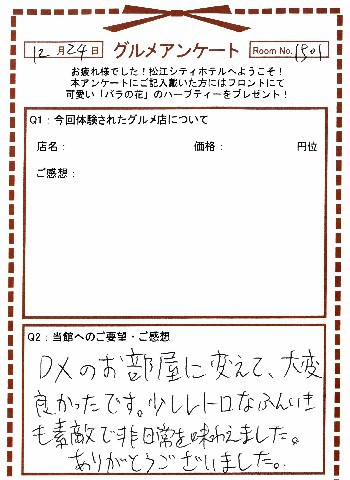 12月24日 グルメアンケート Room No. 1501
お疲れ様でした!松江シティホテルへようこそ!
本アンケートにご記入戴いた方にはフロントにて
可愛い「バラの花」のハーブティーをプレゼント!
Q1:今回体験されたグルメ店について
店名: 価格: 円位
ご感想:
Q2:当館へのご要望・ご感想
DXのお部屋に変えて、大変
良かったです。少しレトロなふんいき
も素敵で非日常を味わえました。
ありがとうございました。